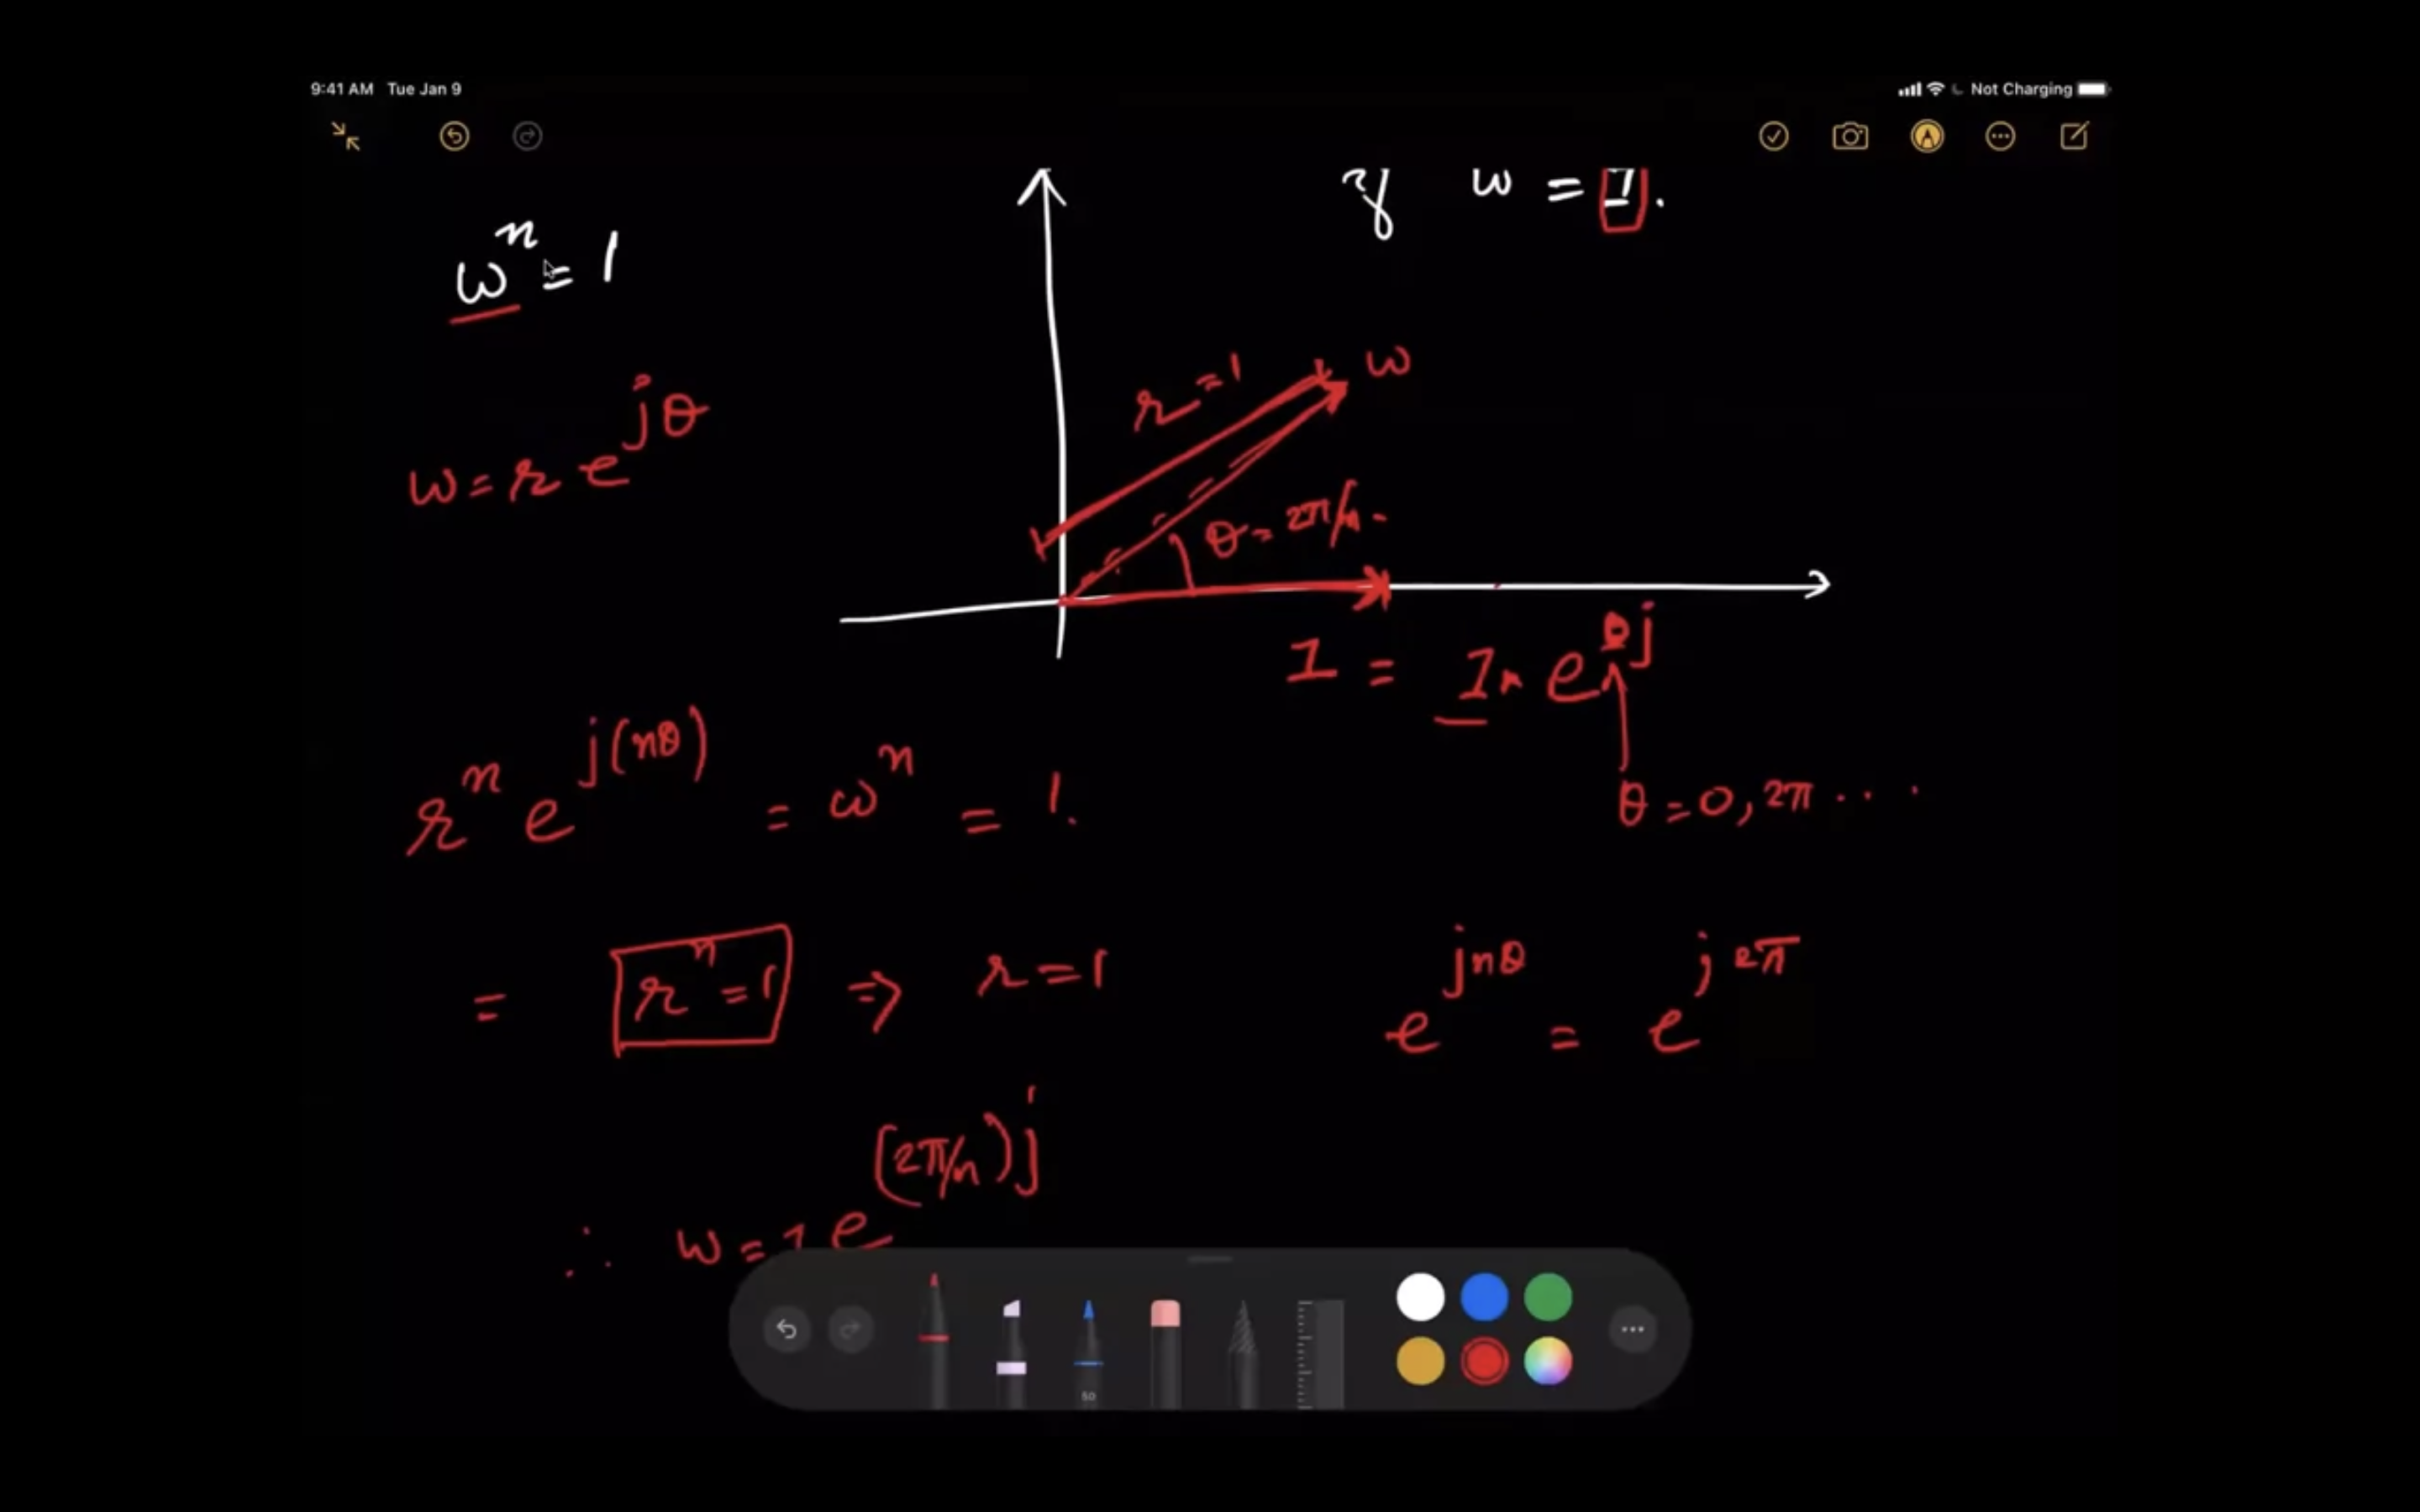 9:41 AM Tue Jan 9
Not Charging
ω = 1.
ωⁿ = 1
r = 1
ω
ω = r e^{jθ}
θ = 2π/n
1 = 1 × e^{0j}
θ = 0, 2π . . .
rⁿ e^{j(nθ)} = ωⁿ = 1.
= rⁿ = 1 ⇒ r = 1
e^{jnθ} = e^{j2π}
∴ ω = 1 e^{(2π/n)j}
50